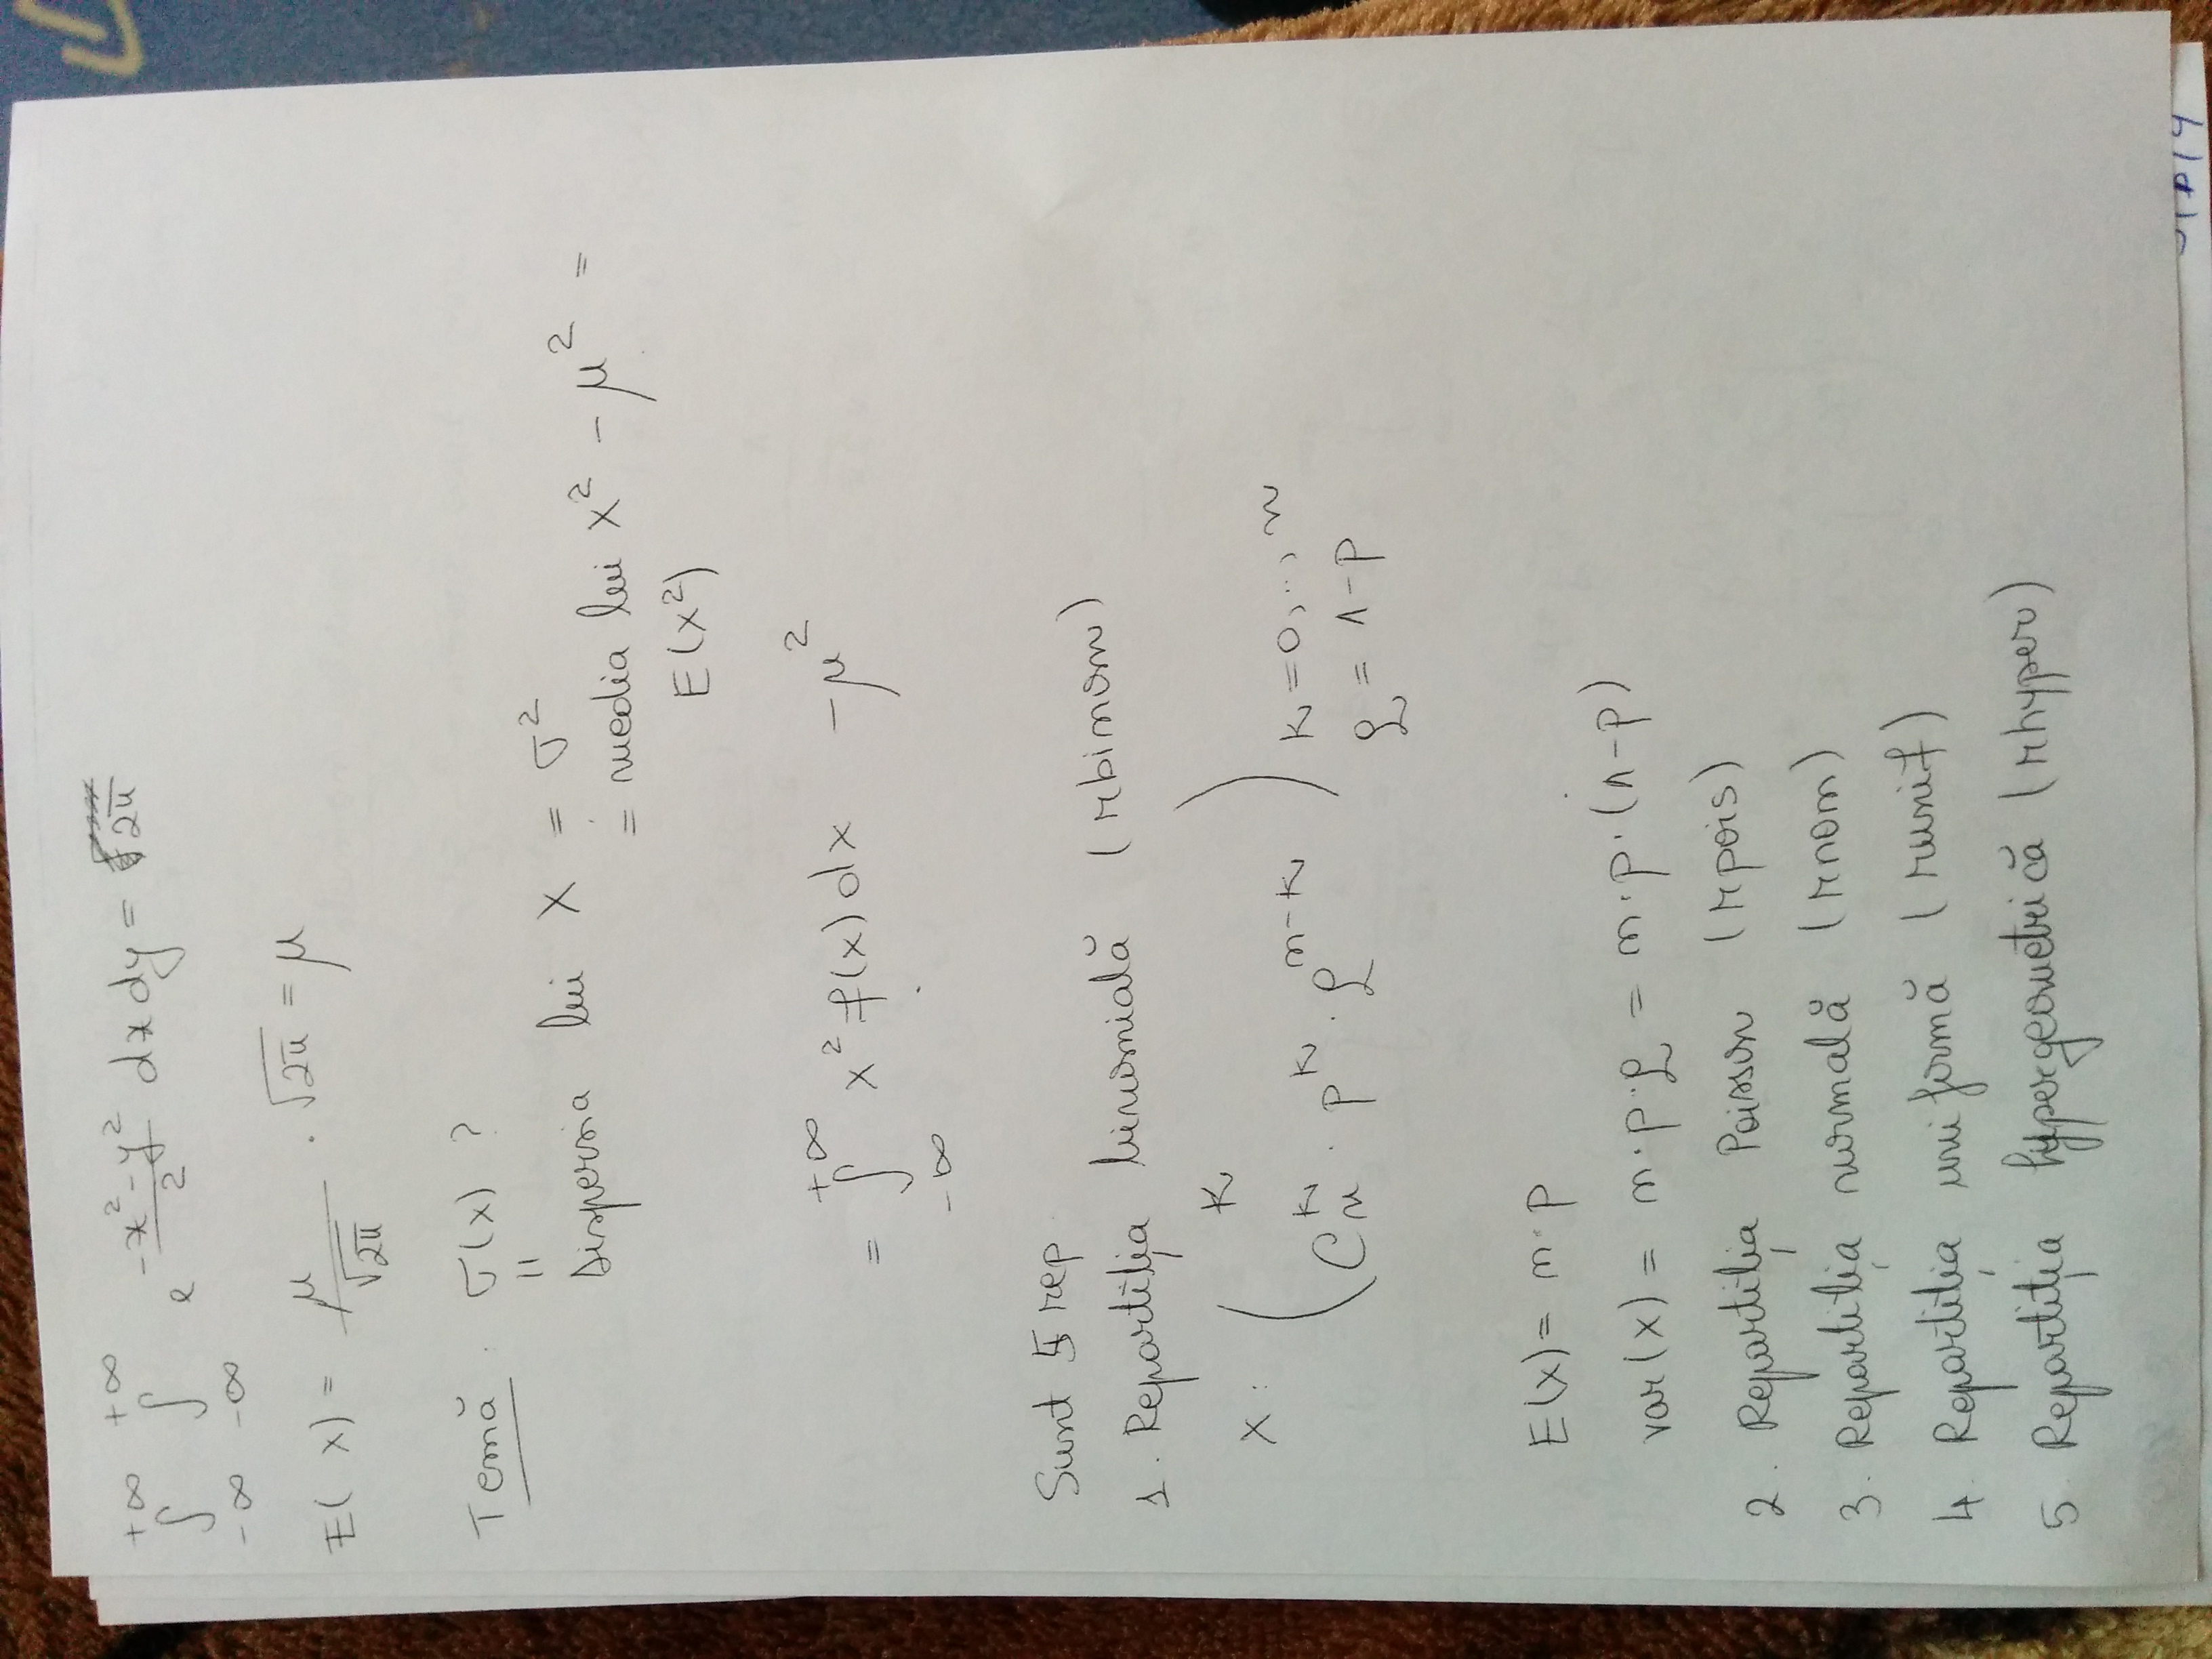 +∞ +∞
∫ ∫ e^{(-x²-y²)/2} dx dy = 2π
-∞ -∞
E( x) = μ/√2π · √2π = μ
Temă. σ(x) ?
=
Dispersia lui X = σ²
= media lui x² - μ² =
E(x²)
= ∫_{-∞}^{+∞} x² f(x) dx - μ²
Sunt 5 rep
1. Repartiția binomială (rbinom)
X: ( K
C_n^K · p^K · q^{n-K} ) K=0,..,n
q = 1-p
E(x) = n·p
var(x) = n·p·q = n·p·(1-p)
2. Repartiția Poisson (rpois)
3. Repartiția normală (rnom)
4. Repartiția uniformă (runif)
5 Repartiția hypergeometrică (rhyper)